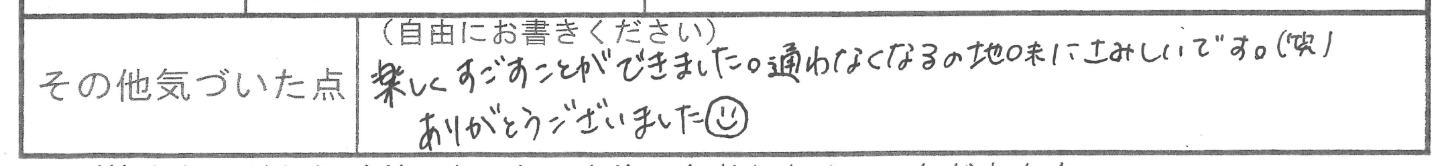 (自由にお書きください)
その他気づいた点
楽しくすごすことができました。通わなくなるの地味にさみしいです。(笑)
ありがとうございました☺